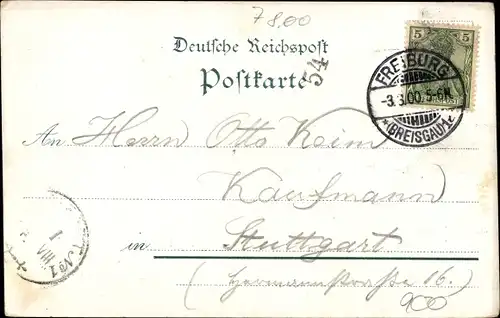 7800
Deutsche Reichspost
Postkarte
54
5 5
FREIBURG
-3.3.00.5-6N.
*(BREISGAU)*
An Herrn Otto Keim
Kaufmann
in Stuttgart
(Hermannstrasse 16.)
900
No 1
VIII
1